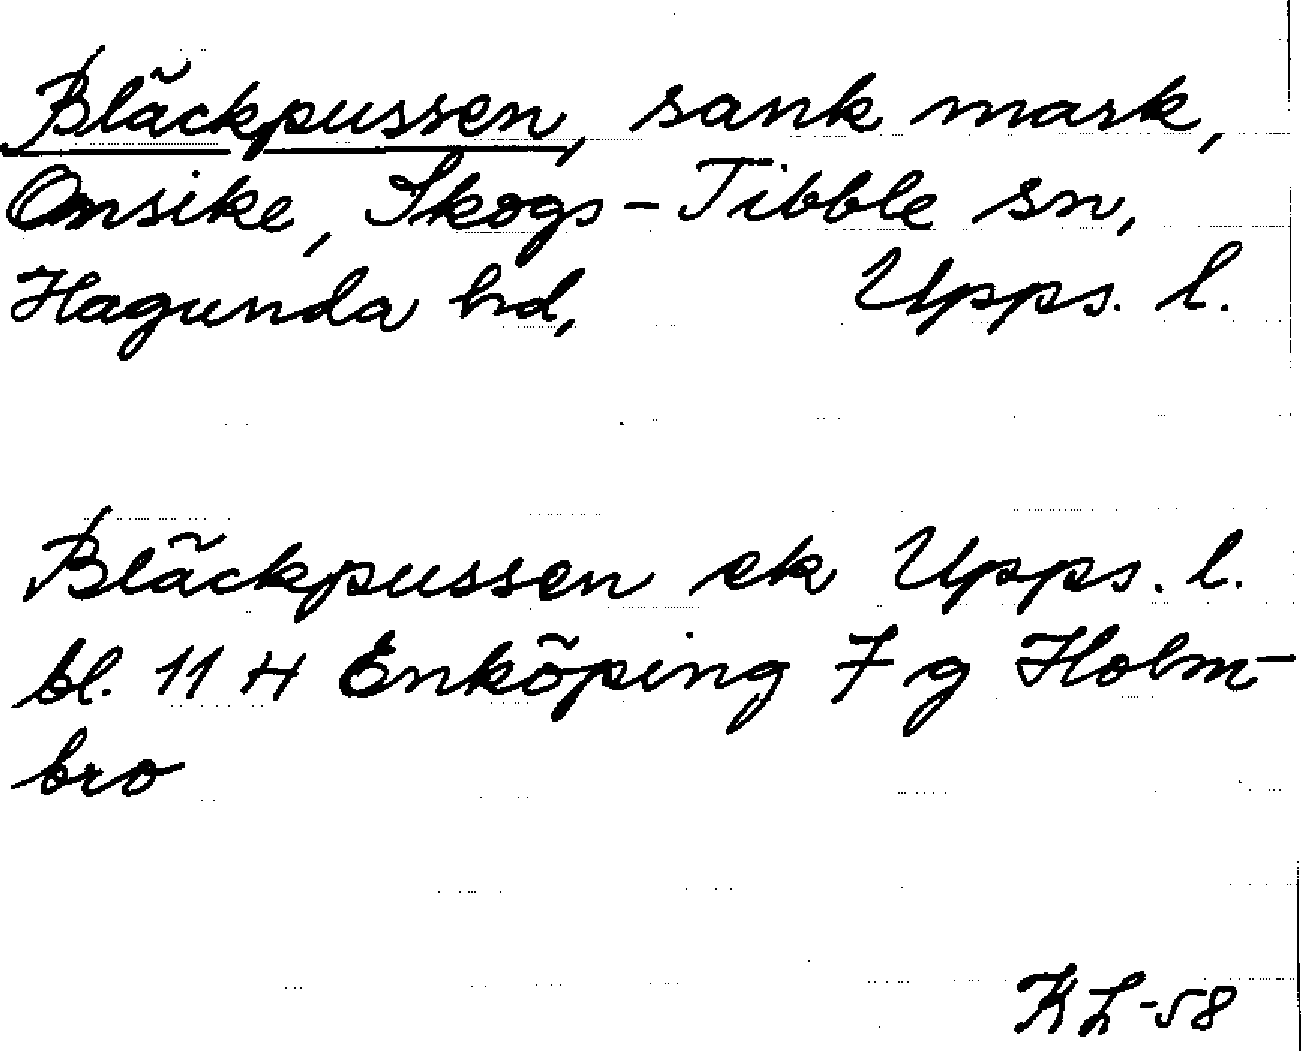 Bläckpussen, sank mark,
Onsike, Skogs-Tibble sn,
Hagunda hd, Upps. l.
Bläckpussen ek Upps. l.
bl. 11 H Enköping 7 g Holm-
bro
KL-58